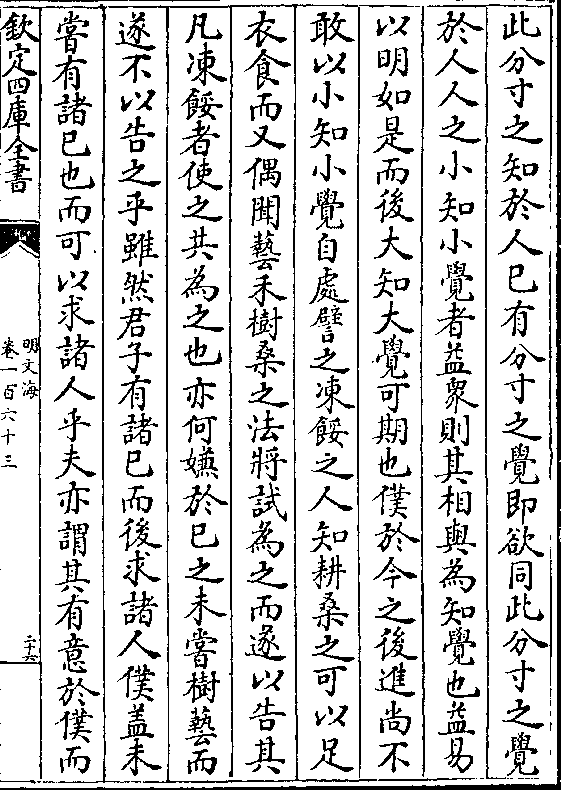 此分寸之知於人已有分寸之覺即欲同此分寸之覺
於人人之小知小覺者益衆則其相與為知覺也益易
以明如是而後大知大覺可期也僕於今之後進尚不
敢以小知小覺自處譬之凍餒之人知耕桑之可以足
衣食而又偶聞藝禾樹桑之法將試為之而遂以告其
凡凍餒者使之共為之也亦何嫌於已之未嘗樹藝而
遂不以告之乎雖然君子有諸已而後求諸人僕盖未
嘗有諸已也而可以求諸人乎夫亦謂其有意於僕而
欽定四庫全書
明文海
卷一百六十三
三十六